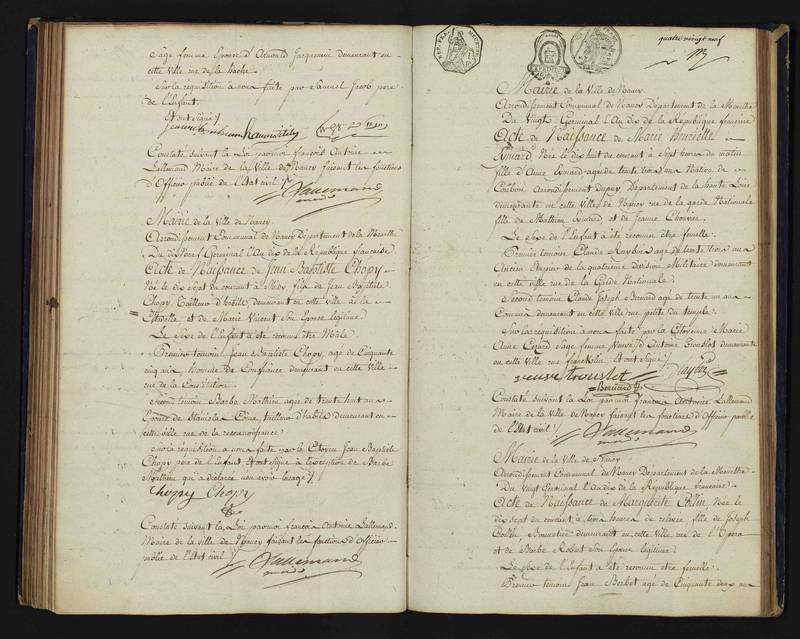 Sage femme Epouse d'Arnould Jacquemin demeurant en
cette Ville rue de la hache.
Sur la requisition à nous faite par Samuel Jacob pere
de l'Enfant.
Et ont signé /
Constaté suivant la Loi par moi françois Antoine
Lallemand Maire de la Ville de Nancy faisant les fonctions
d'Officier public de l'Etat civil /
Lallemand
Mairie de la Ville de Nancy
Arrondissement Communal de Nancy Département de la Meurthe
Du dix Neuf Germinal l'An dix de la République française
Acte de Naissance de Jean Baptiste Chopy
Né le dix Sept du courant à Midy fils de Jean Baptiste
Chopy Tailleur d'habits demeurant en cette ville à la
Citadelle et de Marie Vincent Son Epouse légitime
Le Sexe de l'Enfant a été reconnu être Male.
Premier temoin Jean Baptiste Chopy, age de Cinquante
cinq ans homme de Confiance demeurant en cette Ville
rue de la Constitution
Second temoin Barbe Mathieu agée de trente huit ans
Epouse de Stanislas Côme tailleur d'habits demeurant en
cette ville rue de la reconnoissance
Sur la réquisition à nous faite par le Citoyen Jean Baptiste
Chopy pere de l'Enfant Et ont Signé à l'exception de Barbe
Mathieu qui a déclaré n'en avoir l'usage /
Chopy Chopy
Constaté suivant la Loi, par moi françois Antoine Lallemand
Maire de la ville de Nancy faisant les fonctions d'Officier
public de l'Etat civil /
Lallemand
REP. FRA.
quatre vingt neuf
Mairie de la Ville de Nancy
Arrondissement Communal de Nancy Département de la Meurthe
Du Vingt Germinal l'An dix de la République francaise
Acte de Naissance de Marie henriette
Eymard Née le dix huit du courant à Sept heures du matin
fille d'Anne Eymard agée de trente trois ans Native de
Département de la haute Loire
demeurante en cette Ville de Nancy rue de la garde Nationale
fille de Mathieu Eymard et de Jeanne
Le Sexe de l'Enfant a été reconnu être femelle.
Premier temoin Claude Raybois agé de trente trois ans
Ancien de la quatrieme division Militaire demeurant
en cette ville rue de la Garde Nationale
Second temoin Claude Joseph Bernard agé de trente un ans
Commis demeurant en cette ville rue petite du temple.
Sur la requisition à nous faite par la Citoyenne Marie
Anne Sage femme Veuve d'Antoine Trouslot demeurante
en cette Ville rue francklin. Et ont Signé /
veuve trouslot
Bernard
Constaté suivant la Loi par moi francois Antoine Lallemand
Maire de la ville de Nancy faisant les fonctions d'Officier public
de l'Etat civil /
Lallemand
Mairie de la Ville de Nancy
Arrondissement Communal de Nancy Département de la Meurthe
Du Vingt Germinal l'An dix de la République francaise
Acte de Naissance de Marguerite Collin, Née le
dix Sept du courant à trois heures de relevée, fille de Joseph
Collin demeurant en cette ville rue de l'Opera
et de Barbe Robert Son Epouse légitime
Le Sexe de l'Enfant a été reconnu être femelle.
Premier temoin Jean Berbot agé de Cinquante deux ans